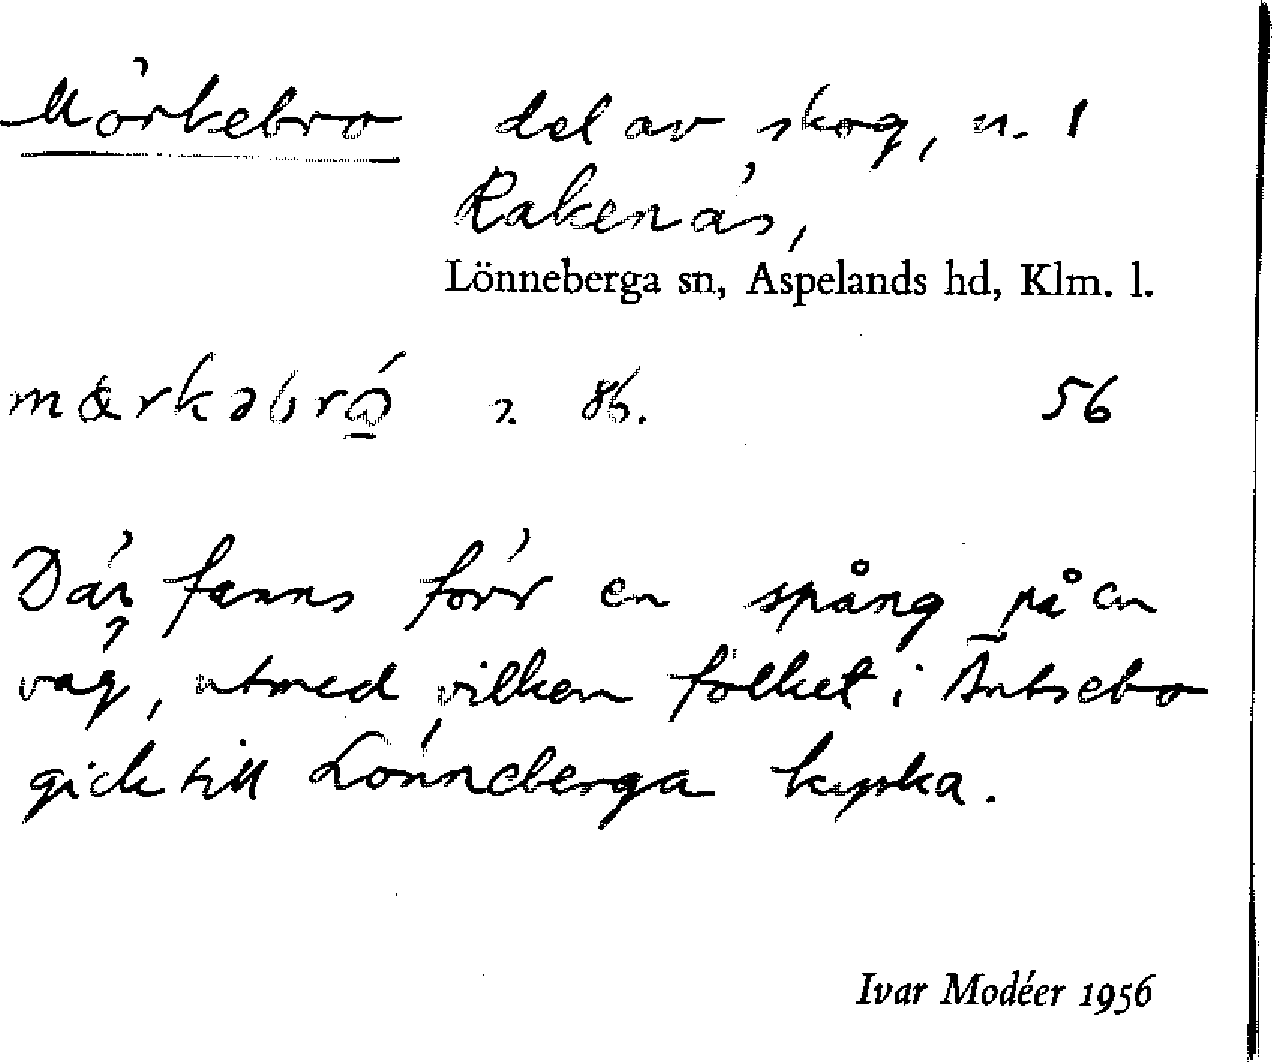 Mörkebro del av skog, n. 1
Rakenäs,
Lönneberga sn, Aspelands hd, Klm. l.
mœrkəbrǫ́ 2. 86. 56
Där fanns förr en spång på en
väg, utmed vilken folket i Äntsebo
gick till Lönneberga kyrka.
Ivar Modéer 1956